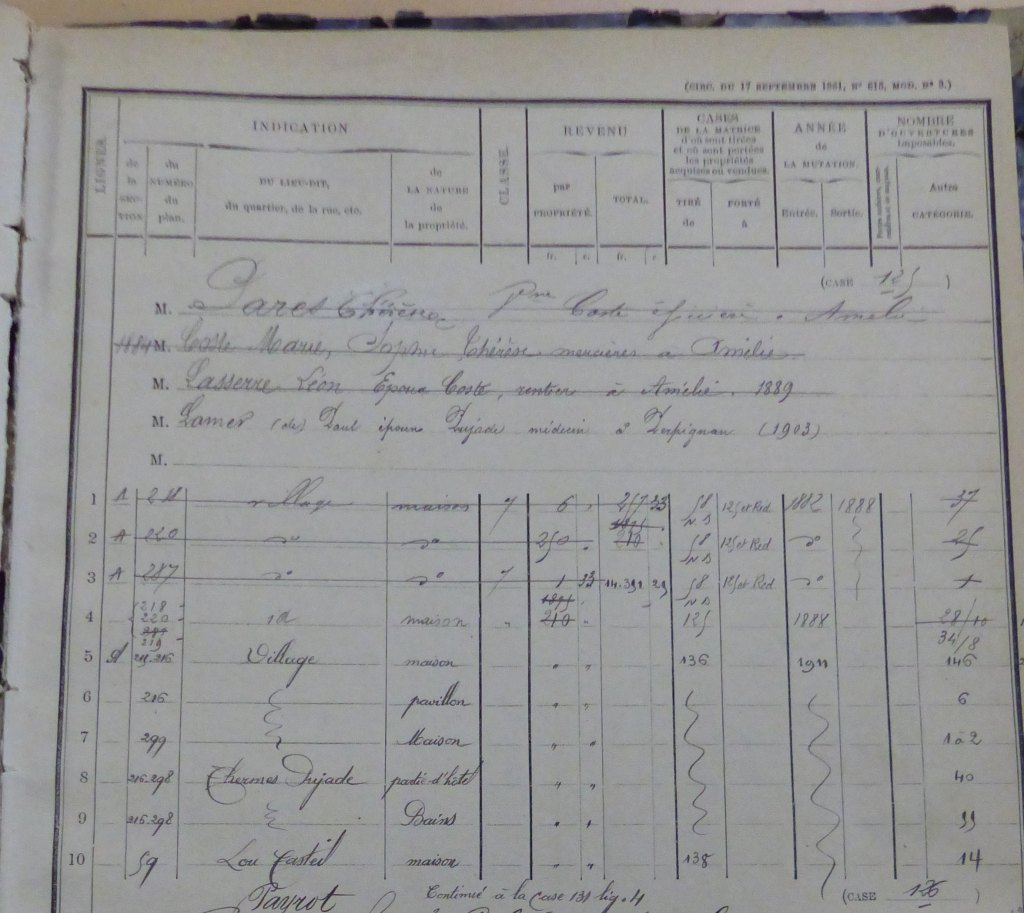 (CIRC. DU 17 SEPTEMBRE 1861, N° 615, MOD. N° 3.)
LIGNES
INDICATION
de la SECTION.
du NUMÉRO du plan.
DU LIEU-DIT, du quartier, de la rue, etc.
de LA NATURE de la propriété.
CLASSE
REVENU
par PROPRIÉTÉ.
TOTAL.
fr. c. fr. c.
CASES DE LA MATRICE d'où sont tirées et où sont portées les propriétés acquises ou vendues.
TIRÉ de
PORTÉ à
ANNÉE de LA MUTATION.
Entrée. Sortie.
NOMBRE D'OUVERTURES imposables.
Autre CATÉGORIE.
(CASE 125 )
M. Pares Thérèse Coste à Amélie
1884 M. Coste Marie, Sophie Thérèse mercières à Amélie
M. Lasserre Léon Epoux Coste, rentier à Amélie. 1889
M. Lamer (de) Paul époux Pujade médecin à Perpignan (1903)
M.
1 A 218 village maison 7 6 " 257 33 58 125 et Red 1882 1888 37
1895
2 A 220 d° d° 250 " 210 58 125 et Red d° 25
3 A 287 d° d° 7 1 33 14.391 29 58 125 et Red d° 1
1895
4 218 220 287 219 id maison " 210 " 125 1888 28/10
34/8
5 A 215.216 Village maison " " 136 1911 146
6 216 pavillon " " 6
7 299 Maison " " 1 à 2
8 216.298 Thermes Pujade partie d'hôtel " " 40
9 216.298 Bains " " 33
10 59 Lou Casteil maison " " 138 14
Payrot Continué à la Case 131 lig. 4 (CASE 126 )